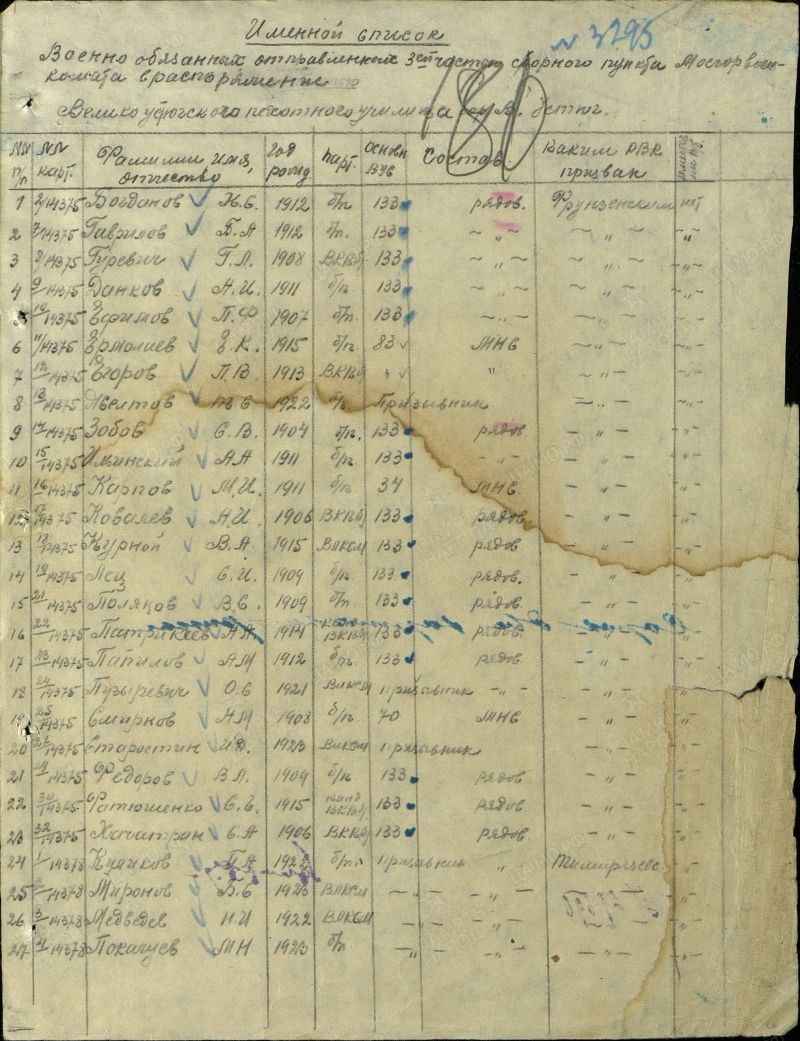 Именной список
N 3295
Военно обязанных отправленных 3ей частью сборного пункта Мосгорвоен-
комата в распоряжение
Велико устюгского пехотного училища устюг.
NN п/п NN карт. Фамилии Имя, отчество Год рожд Парт. Основн ВУС Состав Каким РВК призван
1 2/14375 Богданов Н.С. 1912 б/п 133 рядов. Фрунзенским нет
2 7/14375 Гаврилов Б.А 1912 б/п. 133 ~ „ ~ ~ „ ~ ~„~
3 8/14375 Гуревич Г.Л. 1908 ВКПб) 133 ~ „ ~ ~ „ ~ ~„~
4 9/14375 Данков А.И. 1911 б/п 133 ~ „ ~ ~ „ ~ ~„~
5 10/14375 Ефимов П.Ф 1907 б/п. 133 ~ „ ~ ~ „ ~ ~„~
6 11/14375 Ермолаев Е.К. 1915 б/п 83 МНС ~ „ ~ ~„~
7 12/14375 Егоров П.В 1913 ВКПб) „ „ ~ „ ~ ~„~
8 13/14375 1922 б/п Призывник ~ „ ~
9 14/14375 Зобов С.В. 1904 б/п. 133 рядов – „ –
10 15/14375 Ильинский А.А 1911 б/п 133 – „ – – „ –
11 16/14375 Карпов М.И. 1911 б/п 34 МНС. – „ –
12 17/14375 Ковалев А.И. 1906 ВКПб) 133 рядов – „ –
13 18/14375 Курной В.А. 1915 ВЛКСМ 133 рядов – „ –
14 19/14375 Лец С.И. 1909 б/п 133 рядов. – „ –
15 21/14375 Поляков В.С. 1909 б/п 133 рядов – „ –
16 22/14375 Патрикеев А.А 1914 канд ВКПб) 133 рядов – „ –
17 23/14375 Папилов А.М 1912 б/п 133 рядов – „ –
18 24/14375 Пузыревич О.С 1921 ВЛКСМ призывник – „ – – „ –
19 25/14375 Смирнов А.М 1908 б/п 70 МНС – „ –
20 27/14375 Старостин И.Д. 1923 ВЛКСМ призывник – „ –
21 29/14375 Федоров В.Л. 1909 б/п 133 рядов – „ –
22 30/14375 Фатюшенко С.С. 1915 канд ВКПб) 133 рядов – „ –
23 32/14375 Хачатрян С.А 1906 ВКПб) 133 рядов – „ –
24 1/14378 Куличков 1922 б/п призывник „ Тимирязев
25 2/14378 Миронов В.С 1923 ВЛКСМ – „ –
26 3/14378 Медведев Н.И 1922 ВЛКСМ – „ –
27 4/14378 М.Н 1923 б/п – „ –